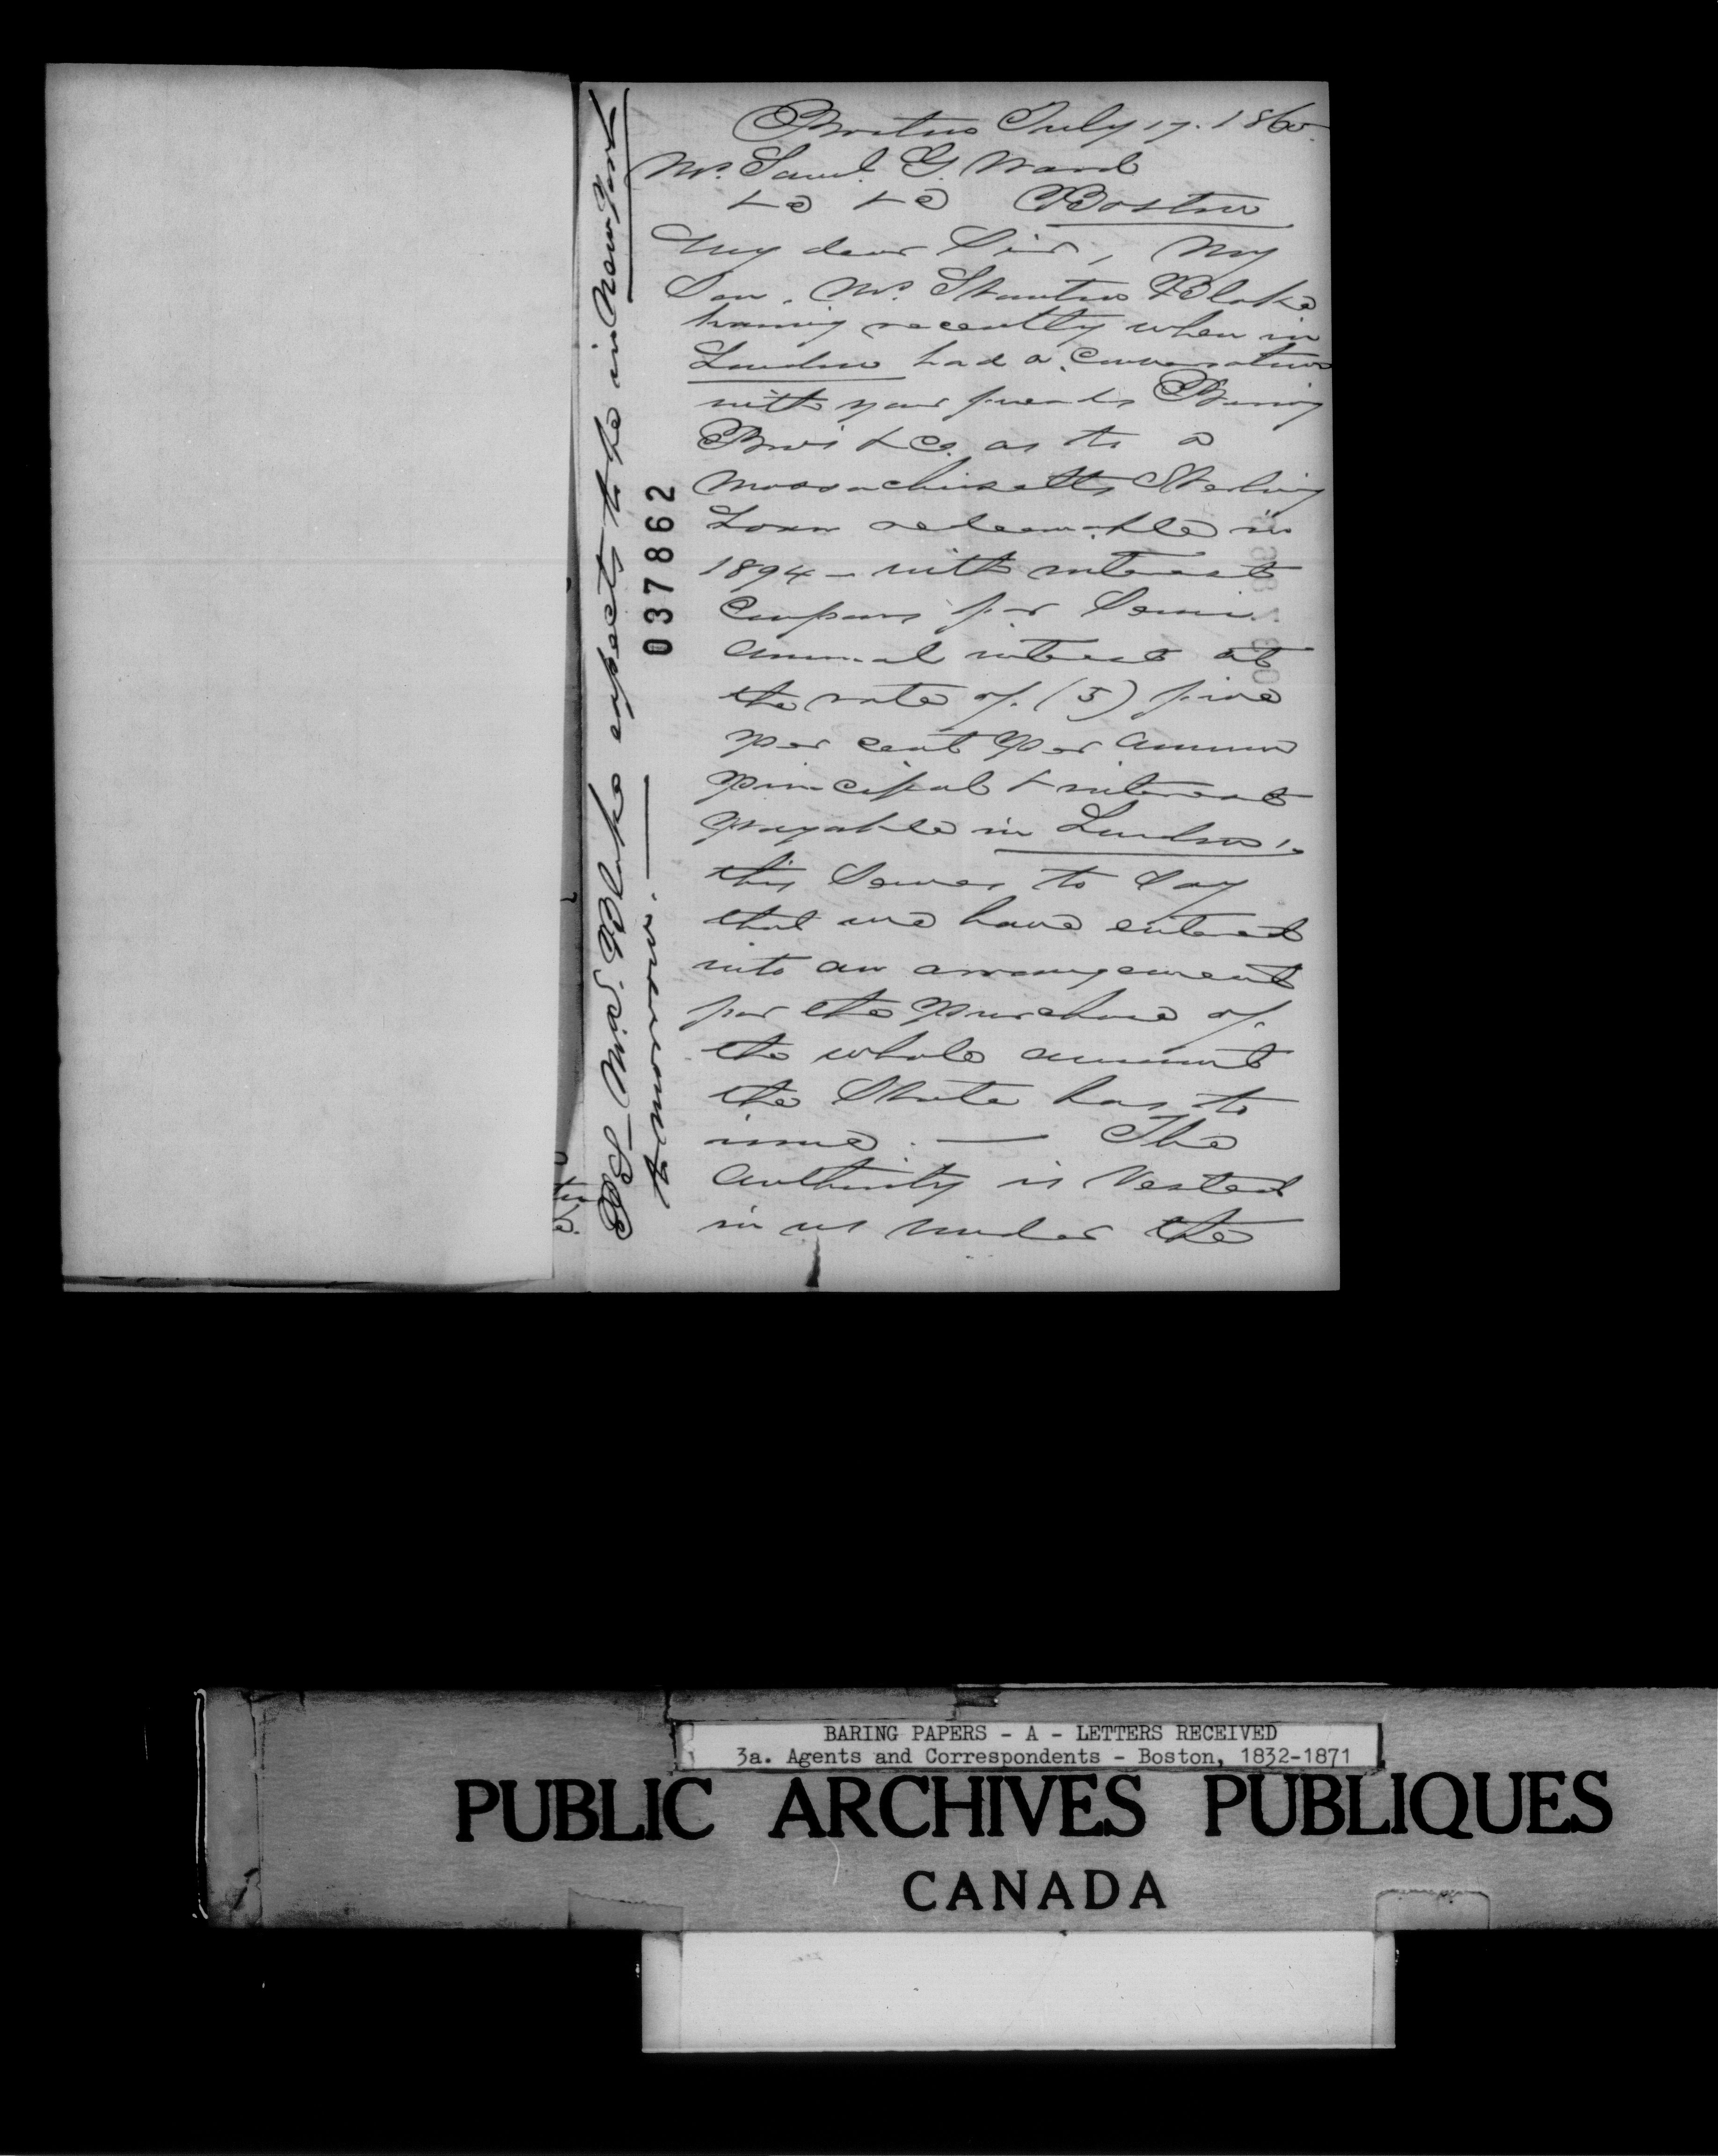 Boston July 17. 1865
Mr. Saml. G. Ward
&c &c Boston
My dear Sir, My
Son. Mr. Stanton Blake
having recently when in
London had a conversation
with your friends Baring
Bros & Co. as to a
Massachusetts Sterling
Loan redeemable in
1894 - with interest
Coupons for Semi
annual interest at
the rate of (5) five
per cent per annum
principal & interest
payable in London,
this serves to say
that we have entered
into an arrangement
for the purchase of
the whole amount
the State has to
issue. — The
authority is vested
in us under the
PS — Mr. S. Blake expects to be in New York
tomorrow. —
037862
BARING PAPERS - A - LETTERS RECEIVED
3a. Agents and Correspondents - Boston, 1832-1871
PUBLIC ARCHIVES PUBLIQUES
CANADA